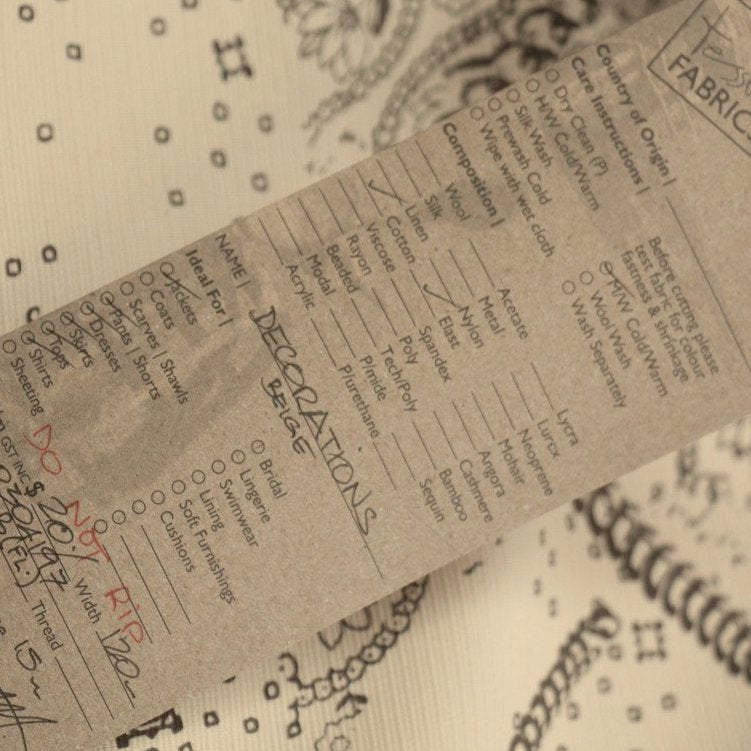 FABRIC
Country of Origin |
Care Instructions |
Dry Clean (P)
H/W Cold/Warm
Silk Wash
Prewash Cold
Wipe with wet cloth
Before cutting please
test fabric for colour
fastness & shrinkage
H/W Cold/Warm
Wool Wash
Wash Separately
Composition |
Wool
Silk
Linen
Cotton
Viscose
Rayon
Beaded
Modal
Acrylic
Acetate
Metal
Nylon
Elast
Spandex
Poly
Tech/Poly
P/mide
P/urethane
Lycra
Lurex
Neoprene
Mohair
Angora
Cashmere
Bamboo
Sequin
NAME | DECORATIONS
BEIGE
Ideal For |
Jackets
Coats
Scarves | Shawls
Pants | Shorts
Dresses
Skirts
Tops
Shirts
Sheeting
Bridal
Lingerie
Swimwear
Lining
Soft Furnishings
Cushions
DO NOT RIP
GST INC $ 20
Width 120
Thread
15